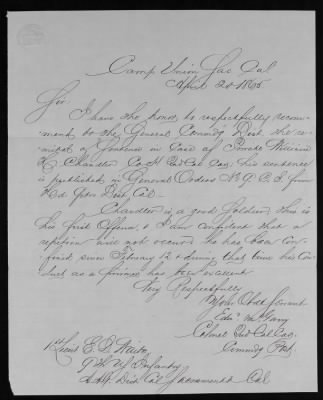 Camp Union Sac Cal
April 20 1865
Sir
I have the honor to respectfully recom-
mend to the General Commdg Dist the re-
mission of Sentence in Case of Private William
H Chandler Co H 2nd Cal Cav, his sentence
is published in General Orders No from
Hd Qtrs Dist Cal
Chandler is a good Soldier this is
his first Offence & I am confident that a
repetition will not occur, he has been con-
fined since February 12 & during that time his con-
duct as a prisoner has been excellent
Very Respectfully
Your Obdt Servant
Edw McGarry
Colonel 2nd Cal Cav
Commdg Post
1st Lieut E. D. Waite
9th U S Infantry
A.A.A.G. Dist Cal Sacramento Cal